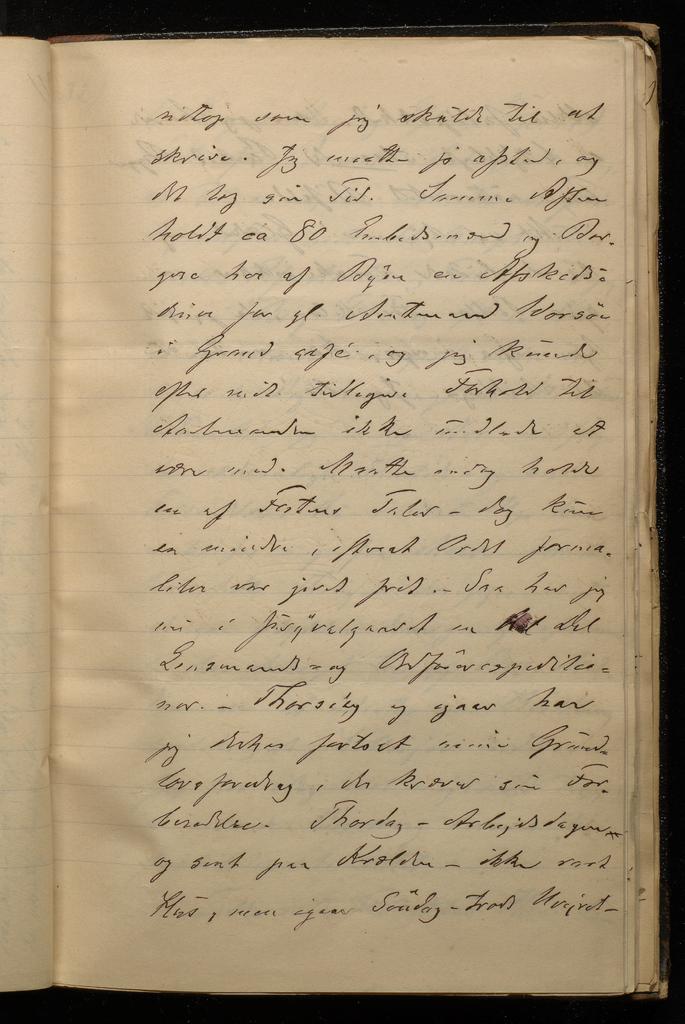 netop som jeg skulde til at
skrive. Jeg maatte jo afsted, og
det tog sin Tid. Samme Aften
holdt ca 80 Embedsmænd og Bor-
gere her af Byen en Afskeds-
diner for gl. Amtmand Worsøe
i Grand café, og jeg kunde
efter mit tidligere Forhold til
Amtmanden ikke undlade at
være med. Maatte endog holde
en af Festens Taler – dog kun
en mindre, efterat Ordet forma-
liter var givet frit. – Saa har jeg
nu i Juryvalgaaret en Del
Lensmands- og Ordførerexpeditio-
ner. – Thorsdag og igaar har
jeg derhos fortsat mine Grund-
lovsforedrag, der kræver sin For-
beredelse. Thorsdag – Arbeidsdagen
og sent paa Kvelden – ikke stort
Hus, men igaar Søndag – trods Uveiret –